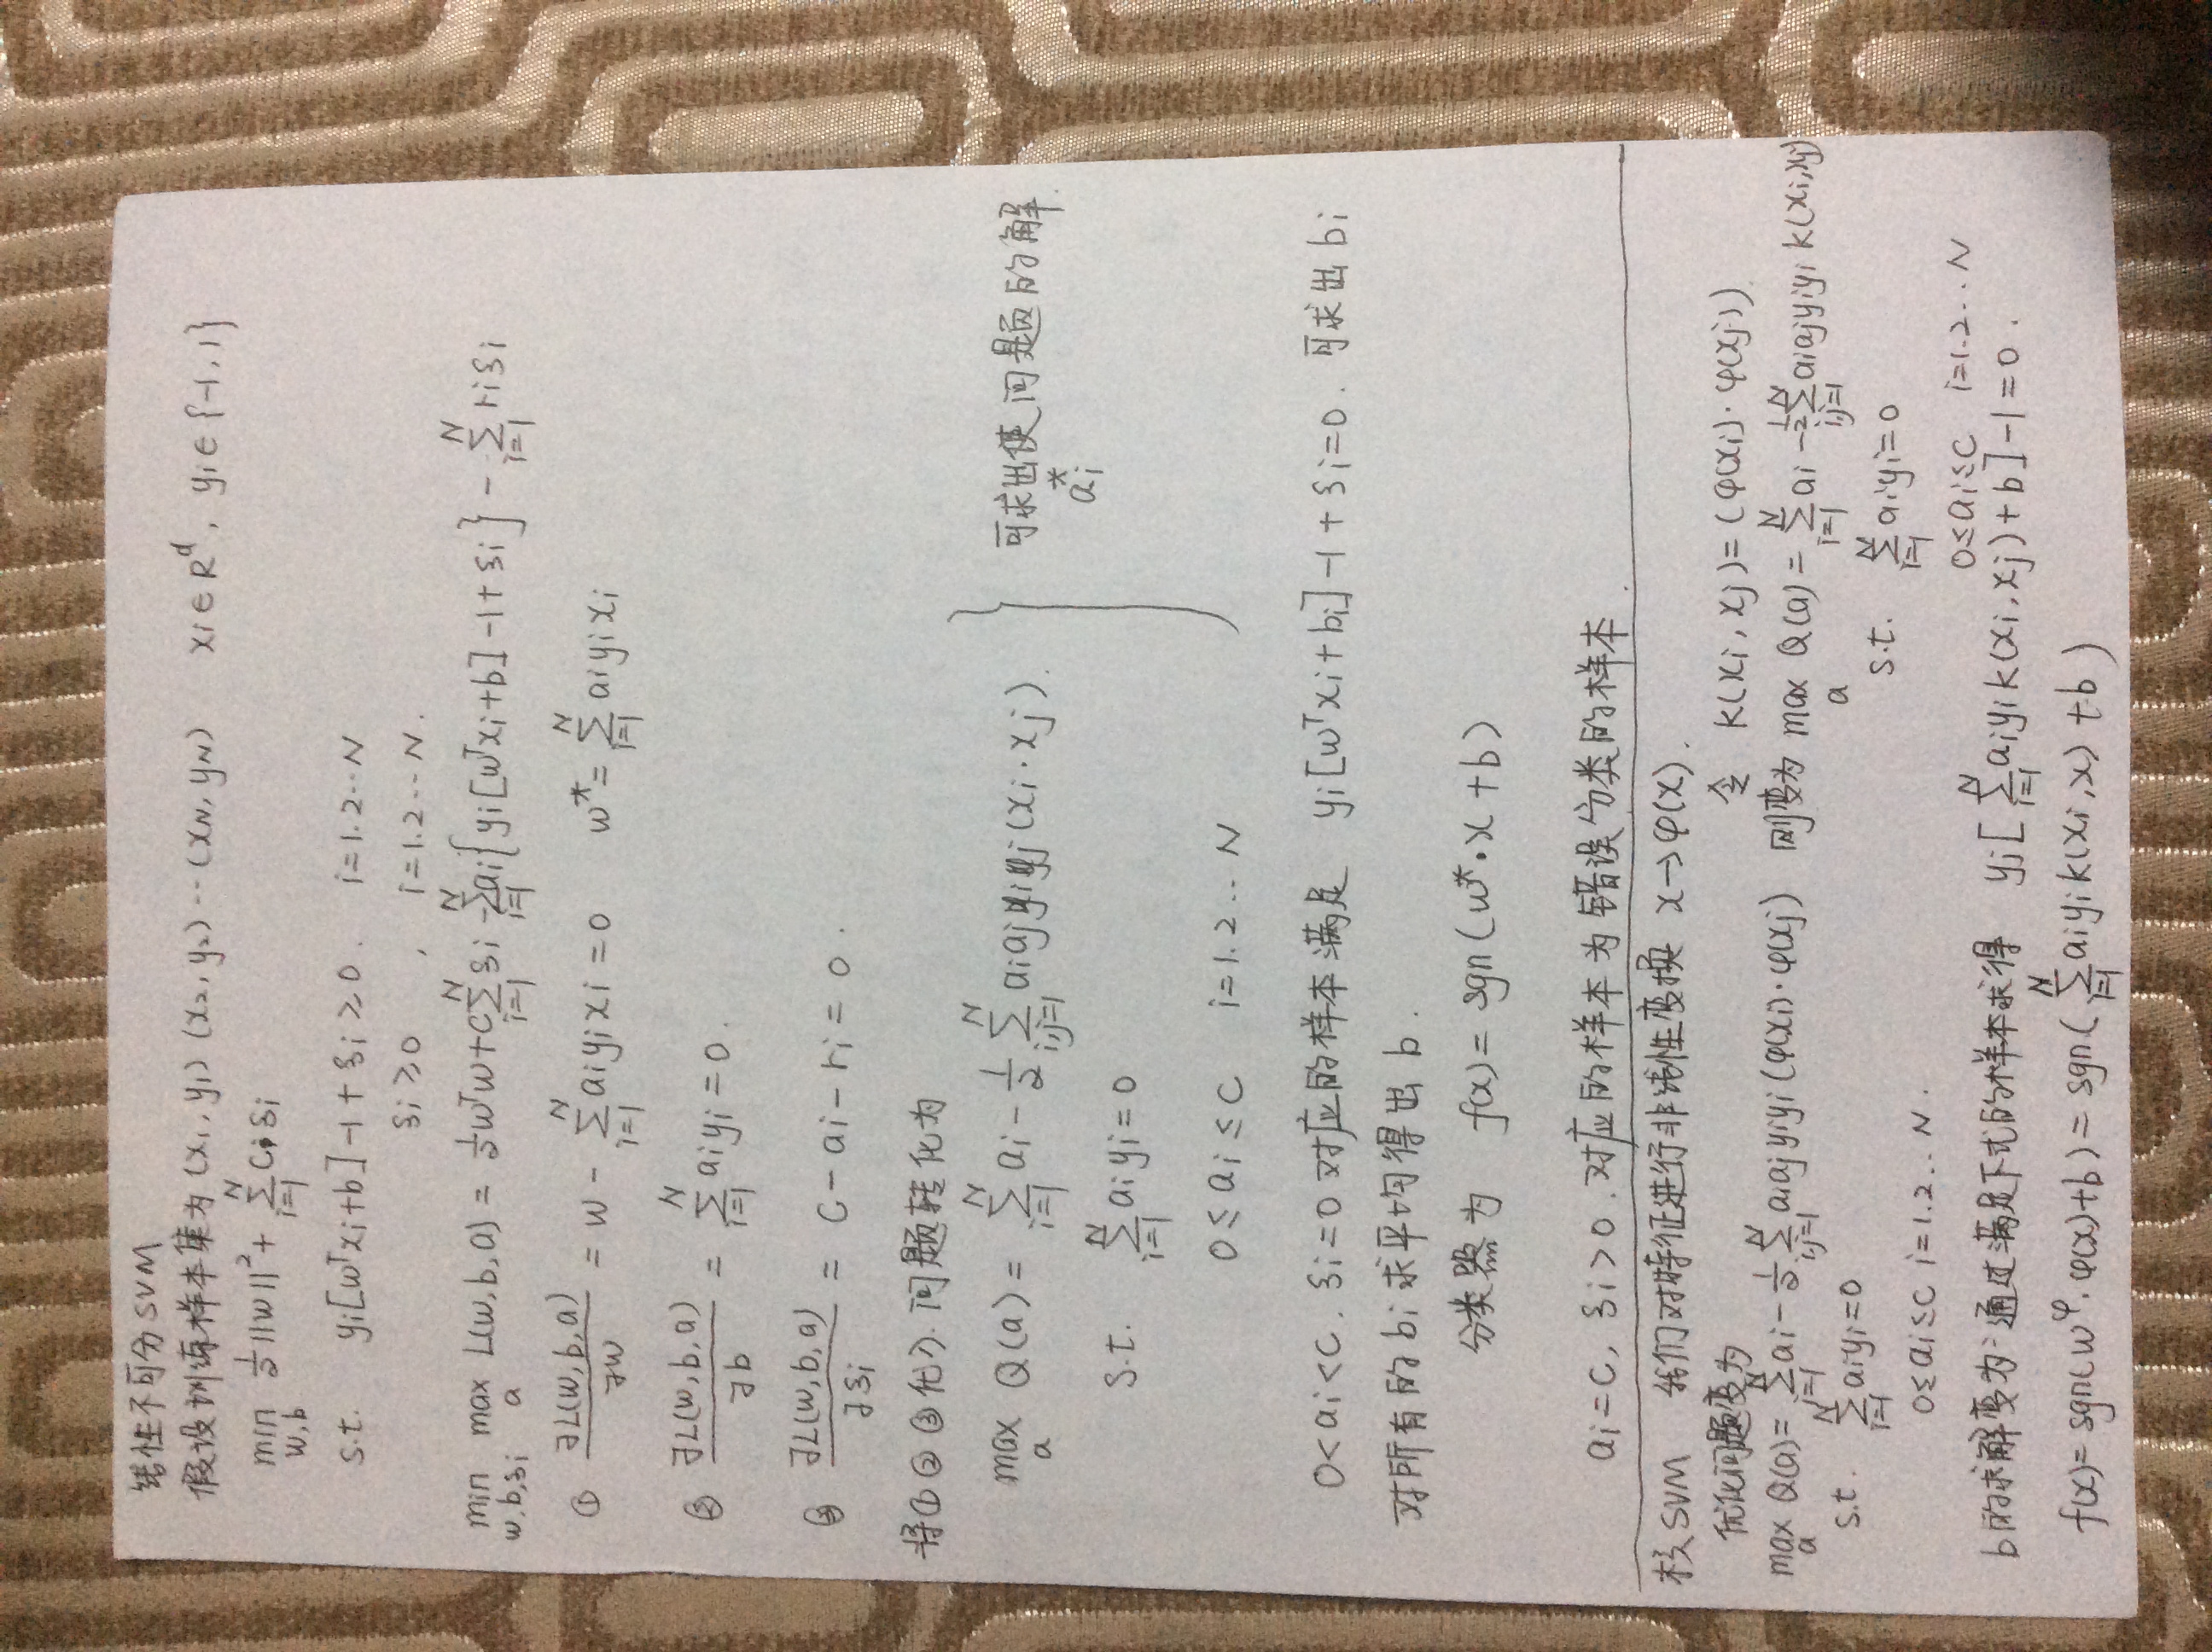 线性不可分SVM
假设训练样本集为 (x₁,y₁) (x₂,y₂)…(x_N,y_N) xᵢ∈R^d, yᵢ∈{-1,1}
min_{w,b} ½||w||² + ∑_{i=1}^N Cᵢξᵢ
s.t. yᵢ[wᵀxᵢ+b]-1+ξᵢ≥0. i=1.2…N
ξᵢ≥0 , i=1.2…N.
min_{w,b,ξᵢ} max_a L(w,b,a) = ½wᵀw + C∑_{i=1}^N ξᵢ - ∑_{i=1}^N aᵢ{yᵢ[wᵀxᵢ+b]-1+ξᵢ} - ∑_{i=1}^N rᵢξᵢ
① ∂L(w,b,a)/∂w = w - ∑_{i=1}^N aᵢyᵢxᵢ=0 w*=∑_{i=1}^N aᵢyᵢxᵢ
② ∂L(w,b,a)/∂b = ∑_{i=1}^N aᵢyᵢ=0.
③ ∂L(w,b,a)/∂ξᵢ = C-aᵢ-rᵢ=0.
将①②③代入.问题转化为
max_a Q(a) = ∑_{i=1}^N aᵢ - ½∑_{i,j=1}^N aᵢaⱼyᵢyⱼ(xᵢ·xⱼ). } 可求出使问题的解.
s.t. ∑_{i=1}^N aᵢyᵢ=0 aᵢ*
0≤aᵢ≤C i=1.2…N
0<aᵢ<C. ξᵢ=0 对应的样本满足 yᵢ[wᵀxᵢ+bᵢ]-1+ξᵢ=0. 可求出bᵢ
对所有的bᵢ求平均得出b.
分类器为 f(x)=sgn(w*·x+b)
aᵢ=C, ξᵢ>0.对应的样本为错误分类的样本.
核SVM 我们对特征进行非线性变换 x→φ(x).
优化问题变为 令 K(xᵢ,xⱼ)=(φ(xᵢ)·φ(xⱼ))
max_a Q(a)=∑_{i=1}^N aᵢ-½∑_{i,j=1}^N aᵢaⱼyᵢyᵢ(φ(xᵢ)·φ(xⱼ) 则变为 max_a Q(a)=∑_{i=1}^N aᵢ-½∑_{i,j=1}^N aᵢaⱼyᵢyᵢk(xᵢ,xⱼ)
s.t. ∑_{i=1}^N aᵢyᵢ=0 s.t. ∑_{i=1}^N aᵢyᵢ=0
0≤aᵢ≤C i=1.2…N. 0≤aᵢ≤C i=1.2…N
b的求解变为:通过满足下式的样本求得 yⱼ[∑_{i=1}^N aᵢyᵢk(xᵢ,xⱼ)+b]-1=0.
f(x)=sgn(w^φ·φ(x)+b)=sgn(∑_{i=1}^N aᵢyᵢk(xᵢ,x)+b)